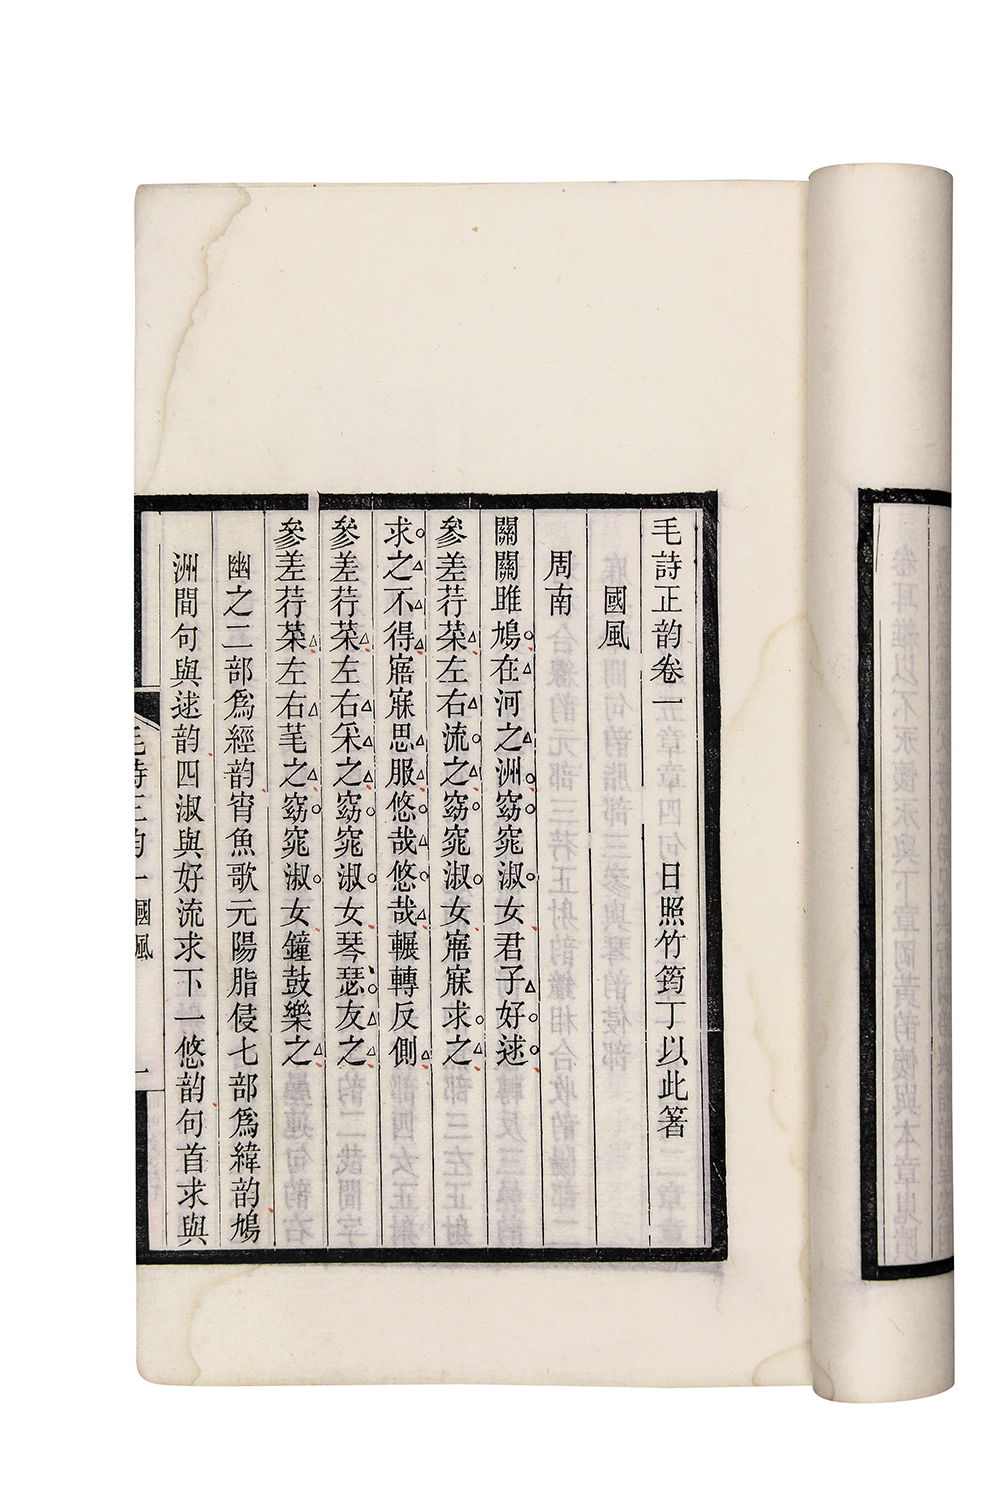 毛詩正韵卷一　日照竹筠丁以此箸
國風
周南
關關雎鳩在河之洲窈窕淑女君子好逑
參差荇菜左右流之窈窕淑女寤寐求之
求之不得寤寐思服悠哉悠哉輾轉反側
參差荇菜左右采之窈窕淑女琴瑟友之
參差荇菜左右芼之窈窕淑女鐘鼓樂之
幽之二部爲經韵宵魚歌元陽脂侵七部爲緯韵鳩
洲間句與逑韵四淑與好流求下一悠韵句首求與
毛詩正韵一國風　一